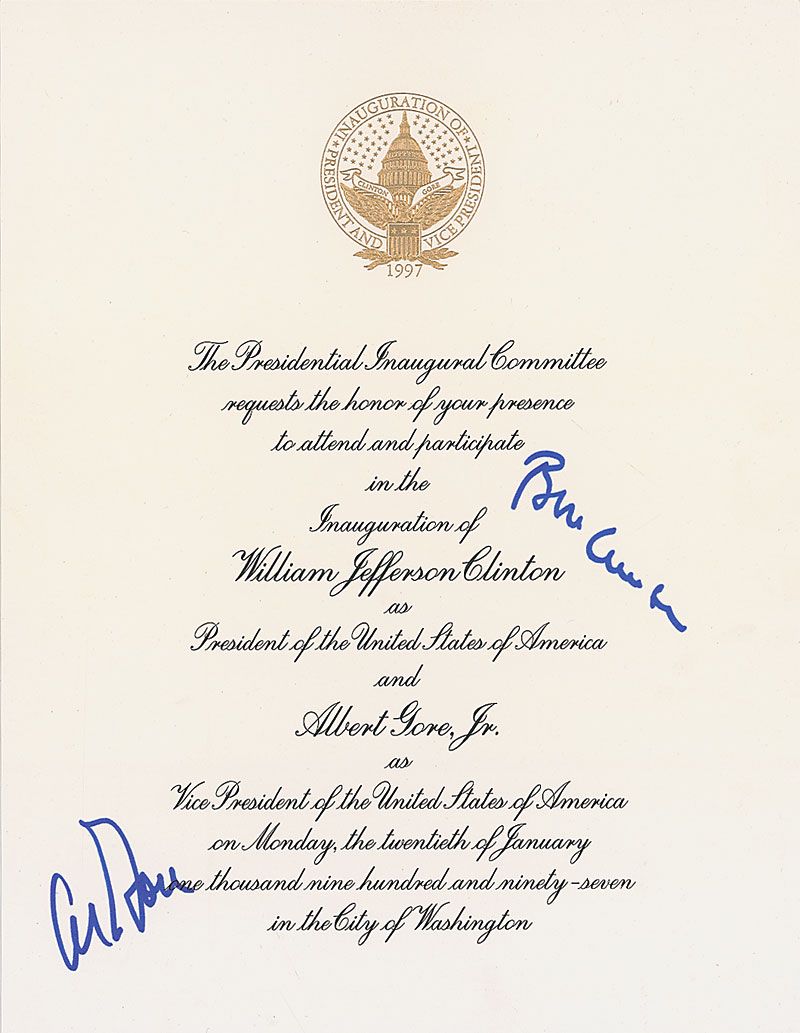 INAUGURATION OF
PRESIDENT AND VICE PRESIDENT
CLINTON GORE
1997
The Presidential Inaugural Committee
requests the honor of your presence
to attend and participate
in the
Inauguration of
William Jefferson Clinton
as
President of the United States of America
and
Albert Gore, Jr.
as
Vice President of the United States of America
on Monday, the twentieth of January
one thousand nine hundred and ninety-seven
in the City of Washington
Bill Clinton
Al Gore